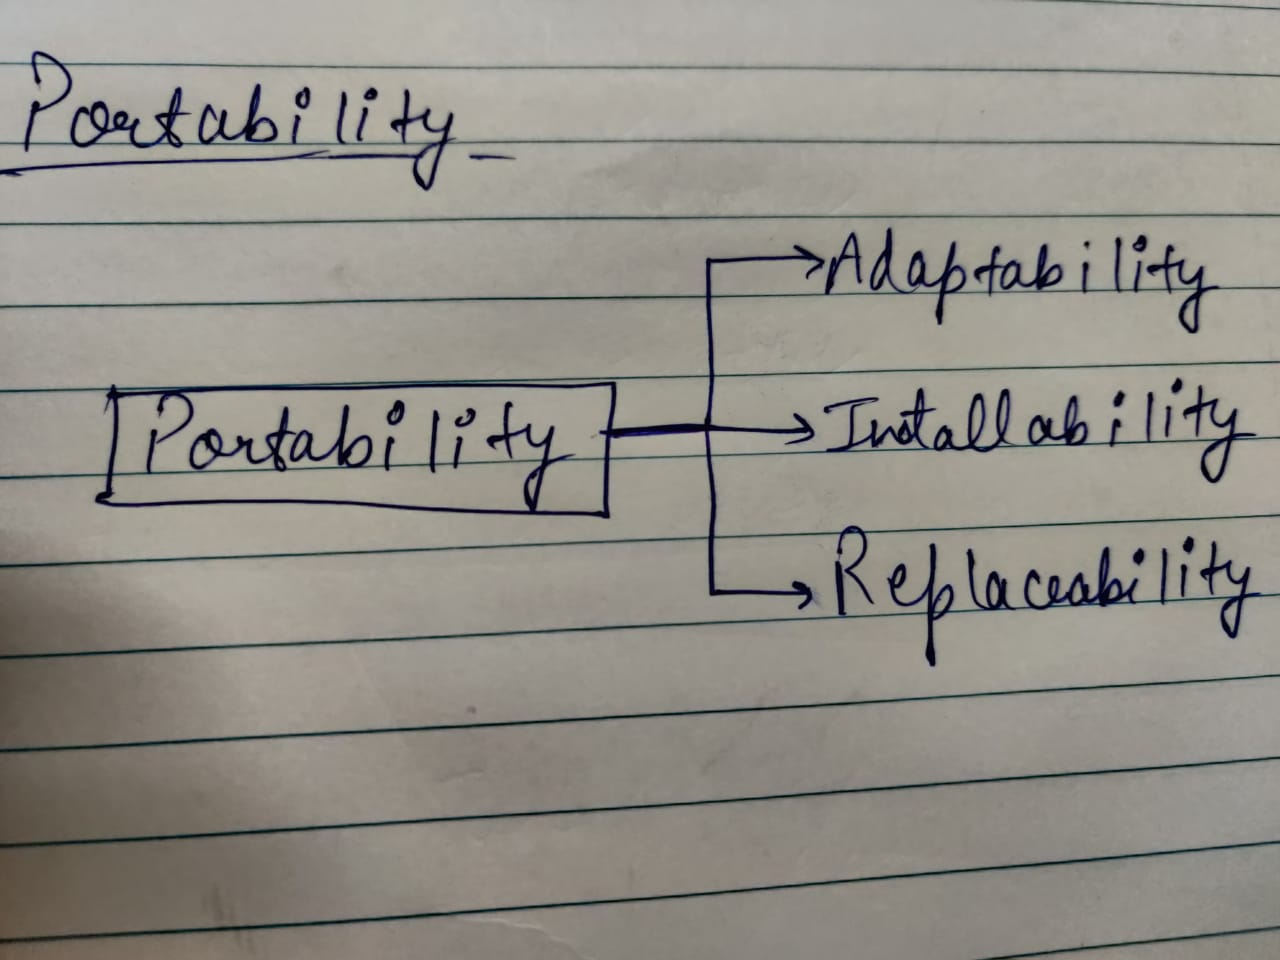 Portability
Adaptability
Portability
Installability
Replaceability